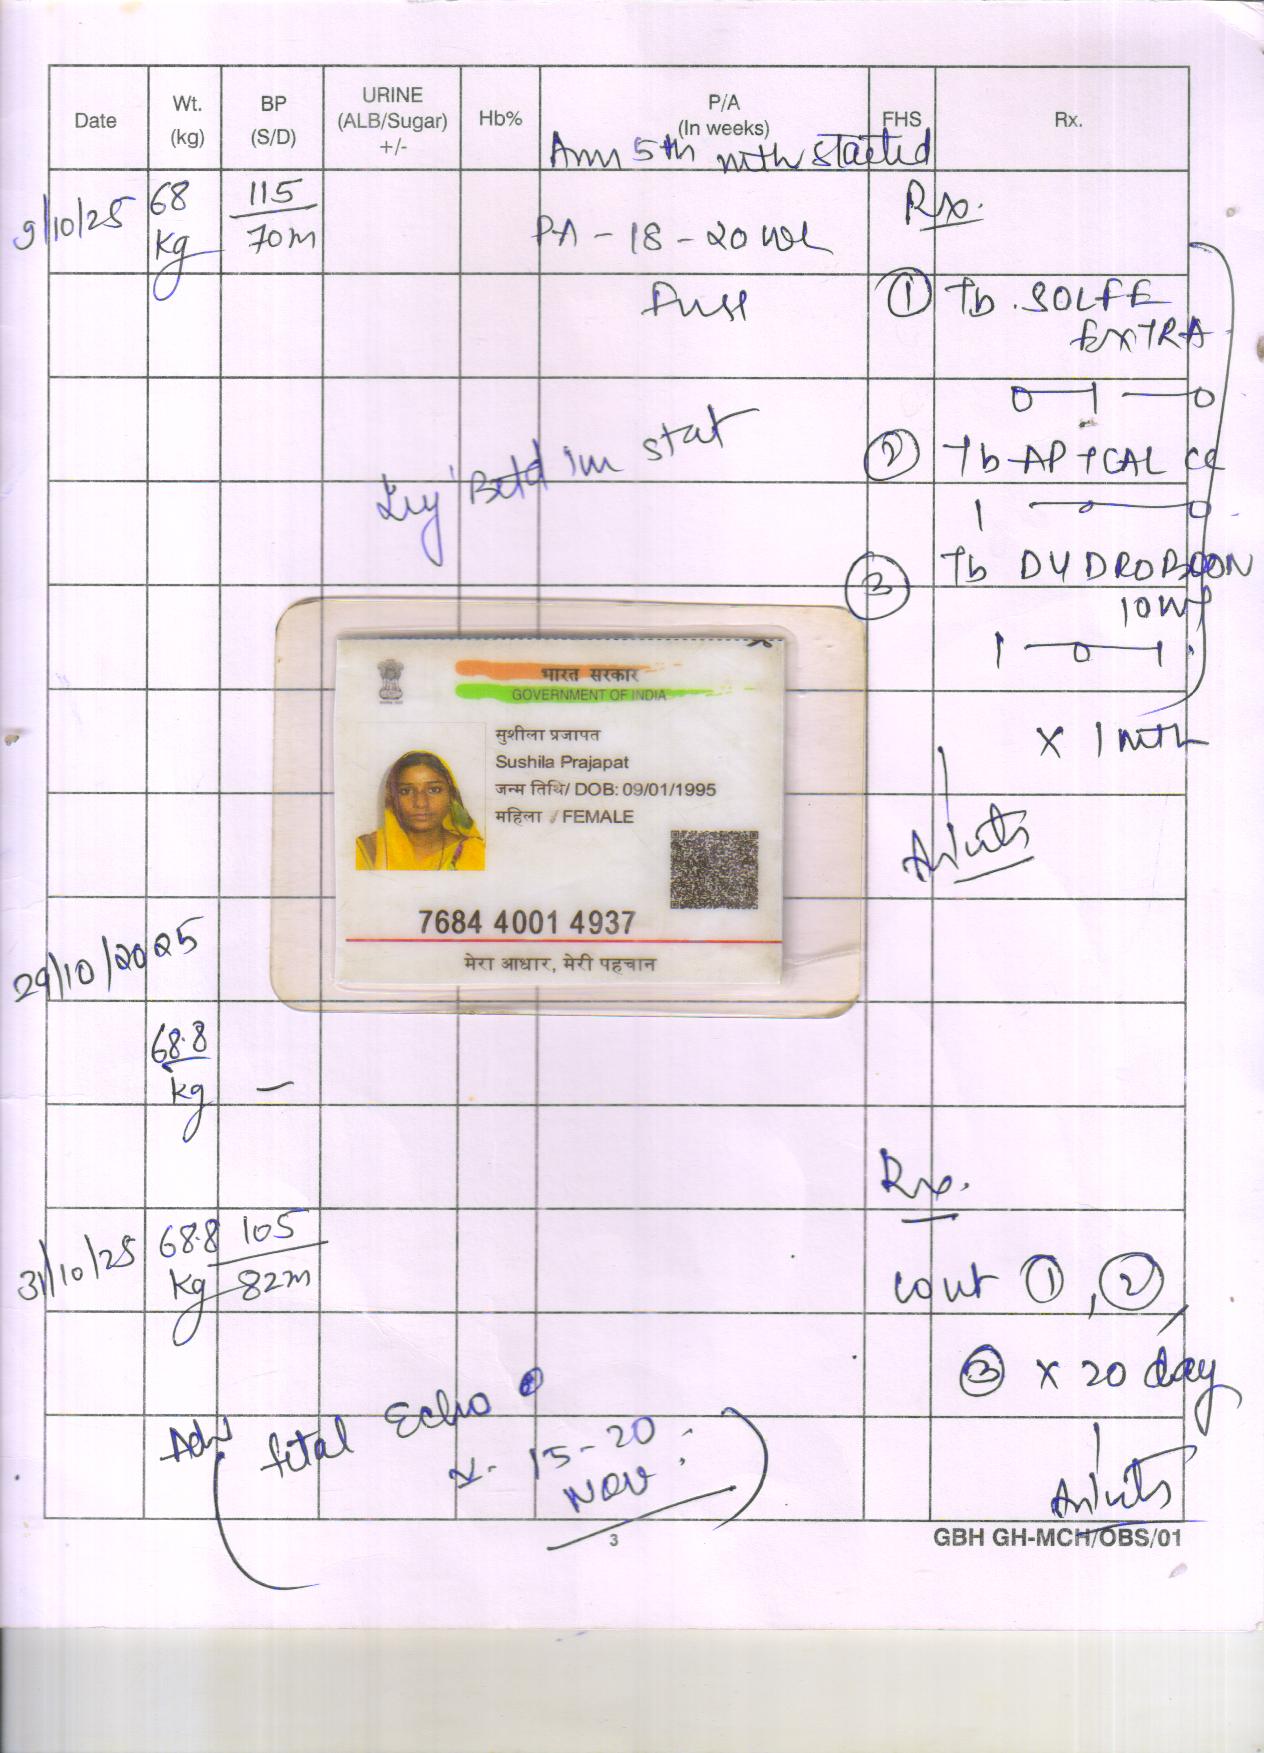 Date Wt. (kg) BP (S/D) URINE (ALB/Sugar) +/- Hb% P/A (In weeks) FHS Rx.
5th mth started
9/10/25 68 kg 115/70 m PA - 18 - 20 wk Rx.
① Tb. SOLFE EXTRA
0 — 1 — 0
Inj Betd im stat
② Tb APTCAL CC
1 — 0 — 0
③ Tb DYDROBOON
10 mg
1 — 0 — 1
x 1 mth
भारत सरकार
GOVERNMENT OF INDIA
सुशीला प्रजापत
Sushila Prajapat
जन्म तिथि/ DOB: 09/01/1995
महिला / FEMALE
7684 4001 4937
मेरा आधार, मेरी पहचान
29/10/2025
68.8 kg —
Rx.
31/10/25 68.8 kg 105/82 m cont ①, ②,
③ x 20 day
Adv fetal Echo
15-20
NOV.
3
GBH GH-MCH/OBS/01